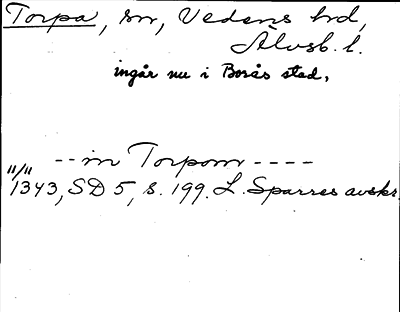 Torpa, sn, Vedens hd,
Älvsb. l.
ingår nu i Borås stad,
-- in Torpom ----
11/11
1343, SD 5, s. 199. L. Sparres avskr